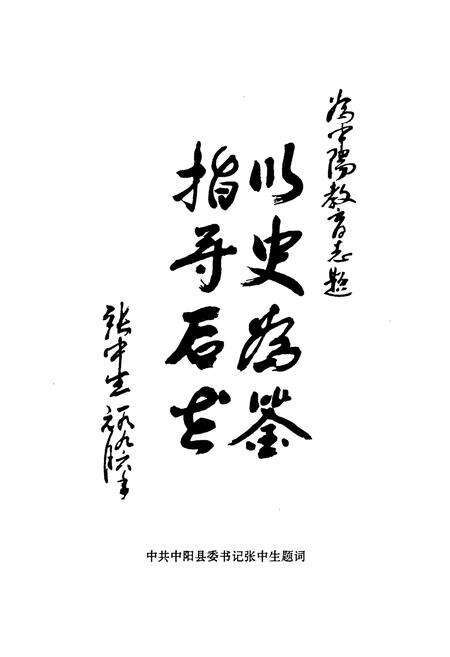 为中阳教育志题
以史为鉴
指导后世
张中生 一九九六年
元月
中共中阳县委书记张中生题词